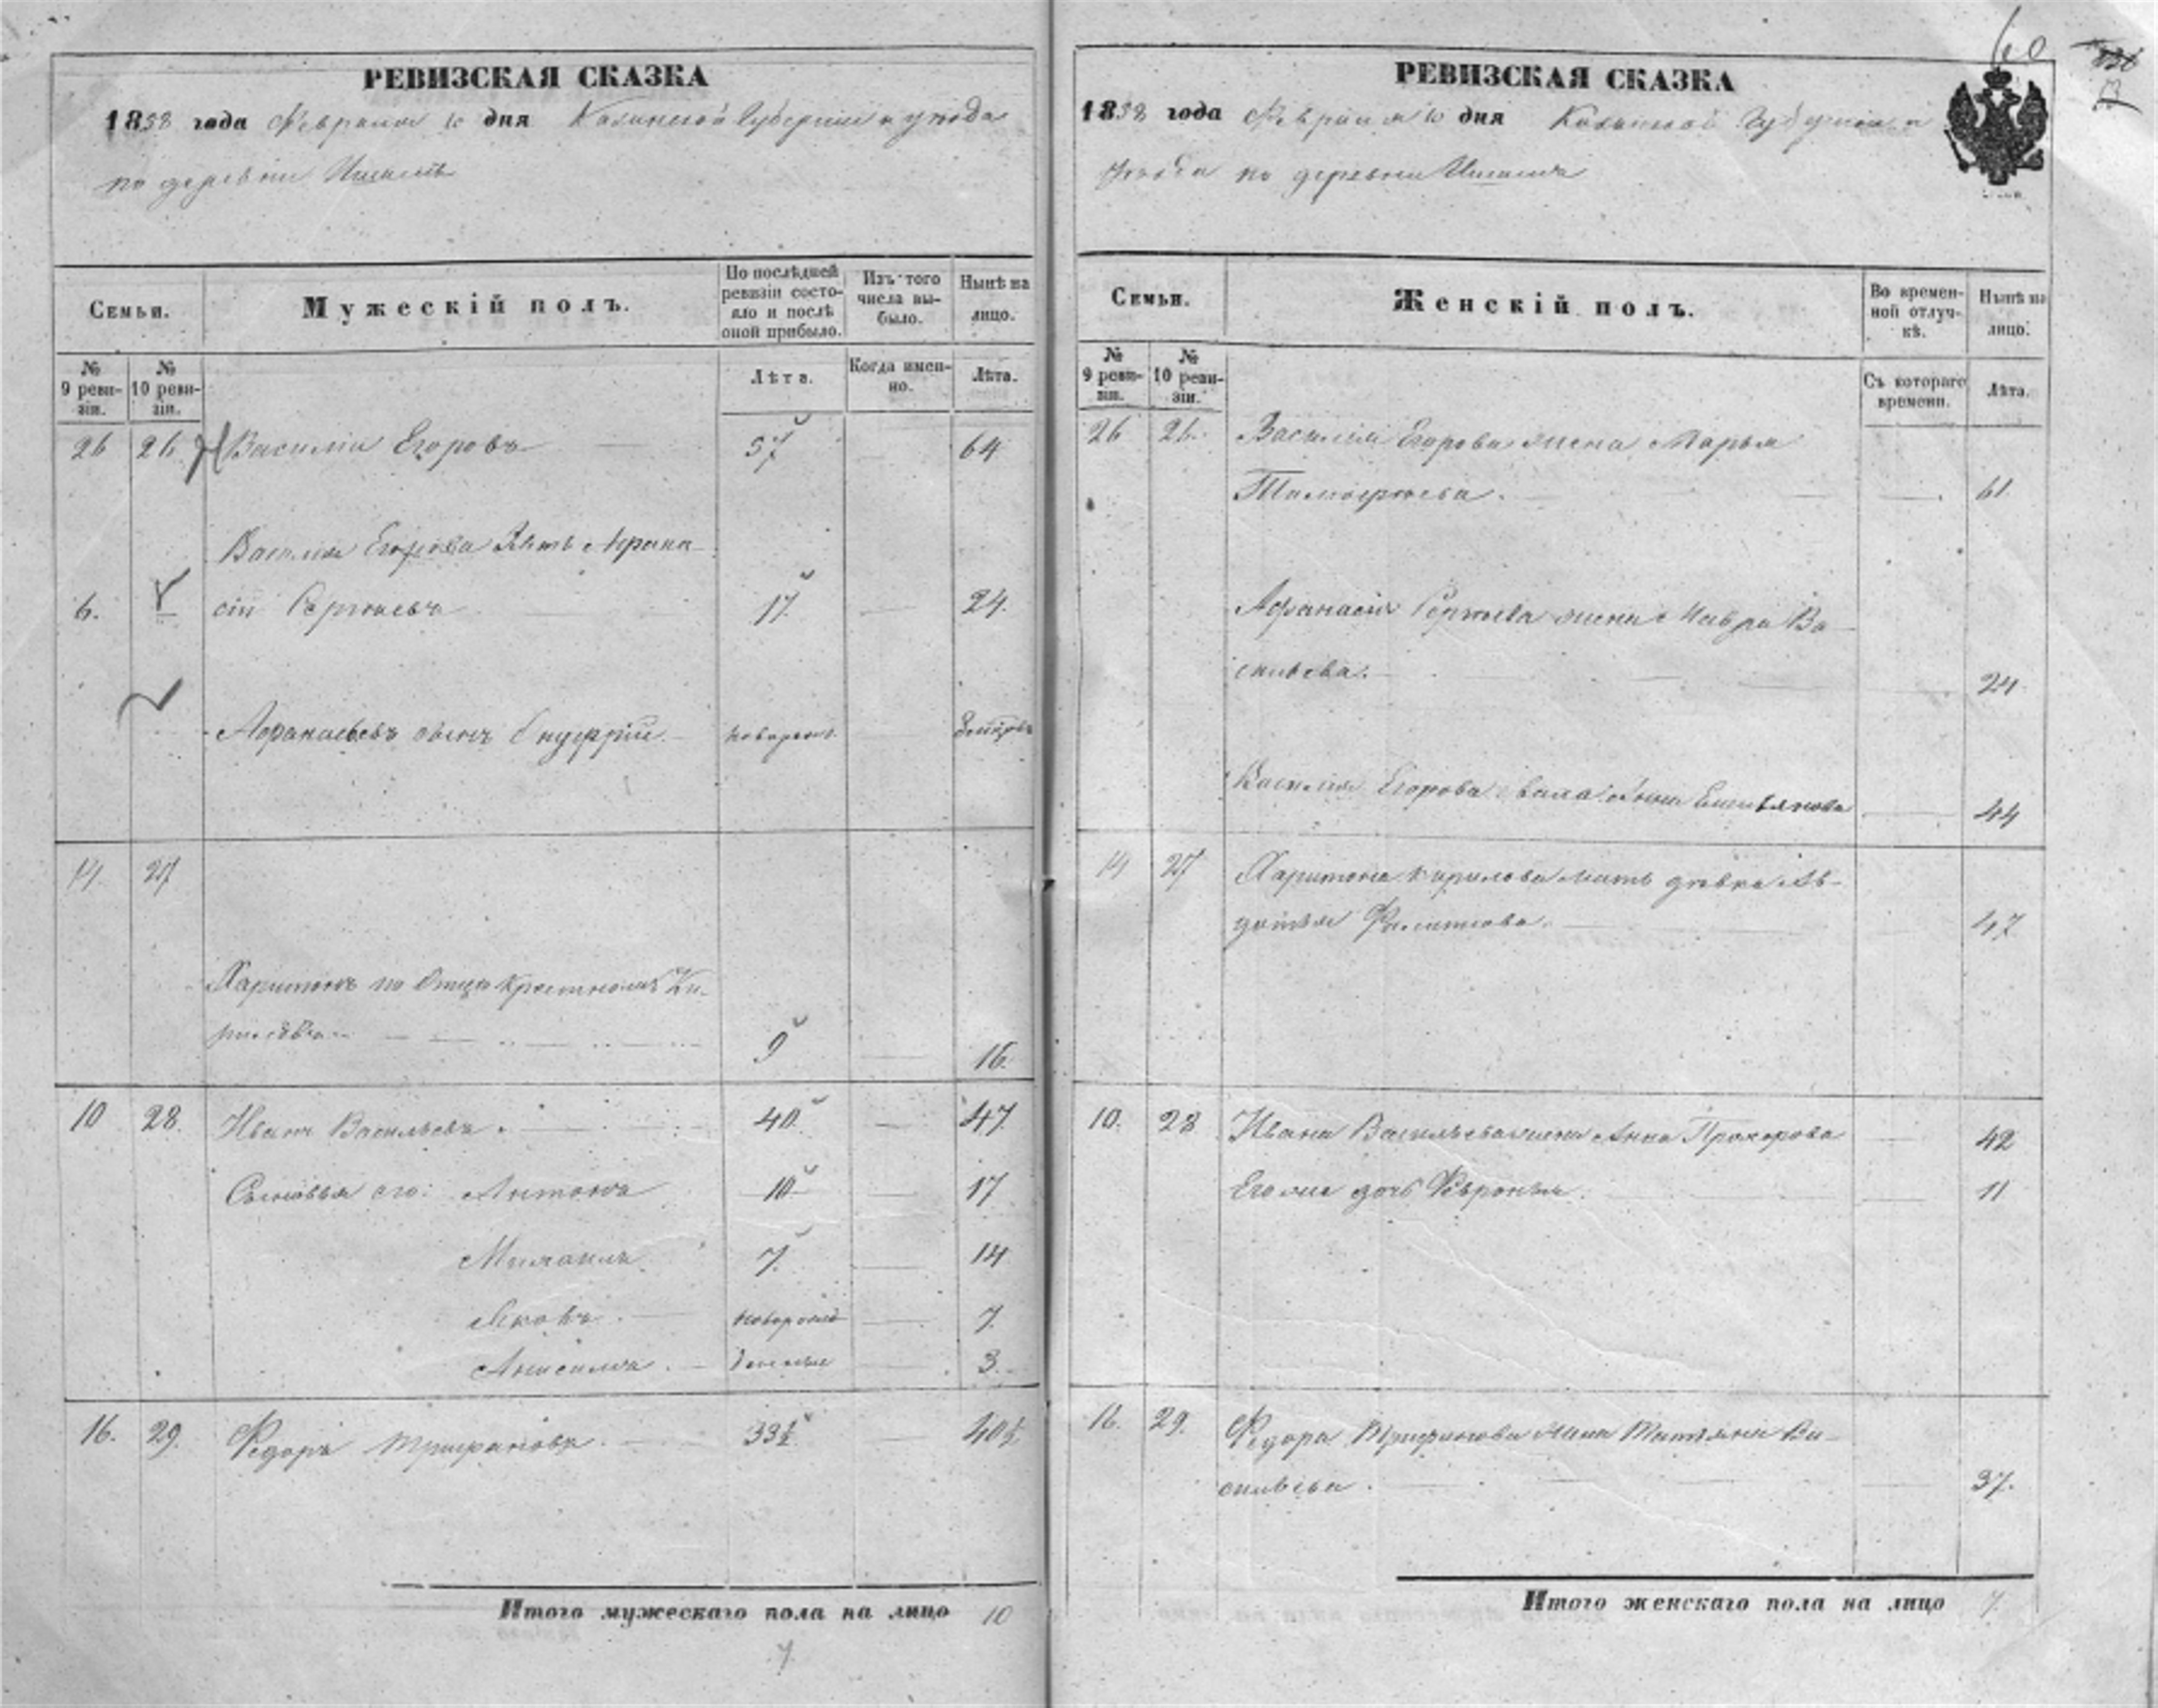 60
РЕВИЗСКАЯ СКАЗКА
1858 года Февраля 10 дня Казанской Губернии и уезда
по деревни
Семьи.
Мужескій полъ.
По послѣдней ревизіи состо-
яло и послѣ оной прибыло.
Изъ того числа вы-
было.
Нынѣ на лицо.
№ 9 реви-
зіи.
№ 10 реви-
зіи.
Лѣта.
Когда имен-
но.
Лѣта.
26 26 Василій Егоровъ 57 64
Василья Егорова Зять Афана-
6. сій Сергѣевъ 17 24.
Афанасьевъ сынъ Онуфрій новорожд.
14. 27
Харитонъ по Отцѣ крестномъ Ки-
риловъ 9 16.
10 28. Иванъ Васильевъ 40 47
Сыновья его: Антонъ 10 17
Михаилъ 7. 14
Яковъ новорожд 7.
Анисимъ 3.
16. 29. Федоръ Трифановъ 33½ 40½
Итого мужескаго пола на лицо 10
7.
РЕВИЗСКАЯ СКАЗКА
1858 года Февраля 10 дня Казанской Губерніи и
уезда по деревни
Семьи.
Женскій полъ.
Во времен-
ной отлуч-
кѣ.
Нынѣ на лицо.
№ 9 реви-
зіи.
№ 10 реви-
зіи.
Съ котораго времени.
Лѣта.
26 26. Василія Егорова жена Марья
Тимофѣева. 61.
Афанасія Сергѣева жена Мавра Ва-
сильева. 24
Василія Егорова Анна Емельянова 44
14 27 Харитона Кирилова мать дѣвка Ав-
дотья Филипова. 47
10. 28 Ивана Васильева жена Анна Прохорова 42
Его же дочь Февронья. 11
16. 29. Федора Трифанова жена Татьяна Ва-
сильева. 37.
Итого женскаго пола на лицо 7.